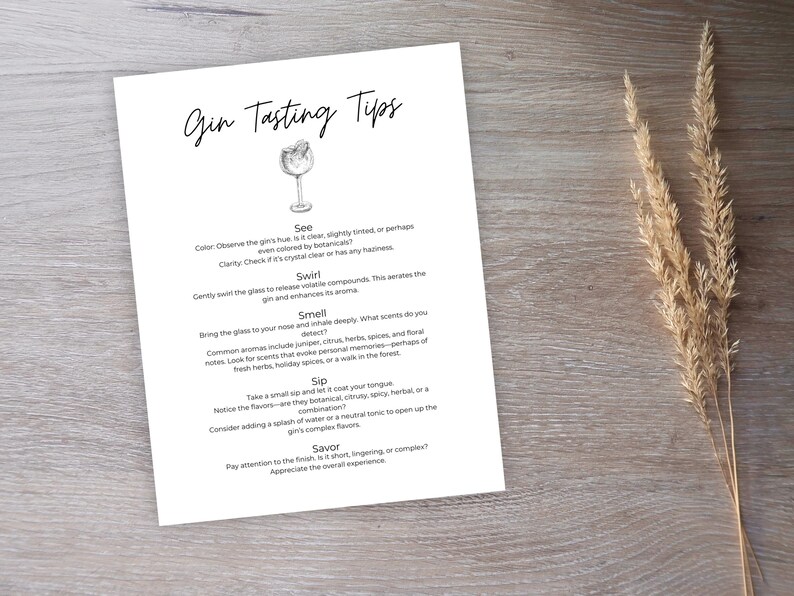 Gin Tasting Tips
See
Color: Observe the gin's hue. Is it clear, slightly tinted, or perhaps
even colored by botanicals?
Clarity: Check if it's crystal clear or has any haziness.
Swirl
Gently swirl the glass to release volatile compounds. This aerates the
gin and enhances its aroma.
Smell
Bring the glass to your nose and inhale deeply. What scents do you
detect?
Common aromas include juniper, citrus, herbs, spices, and floral
notes. Look for scents that evoke personal memories—perhaps of
fresh herbs, holiday spices, or a walk in the forest.
Sip
Take a small sip and let it coat your tongue.
Notice the flavors—are they botanical, citrusy, spicy, herbal, or a
combination?
Consider adding a splash of water or a neutral tonic to open up the
gin's complex flavors.
Savor
Pay attention to the finish. Is it short, lingering, or complex?
Appreciate the overall experience.